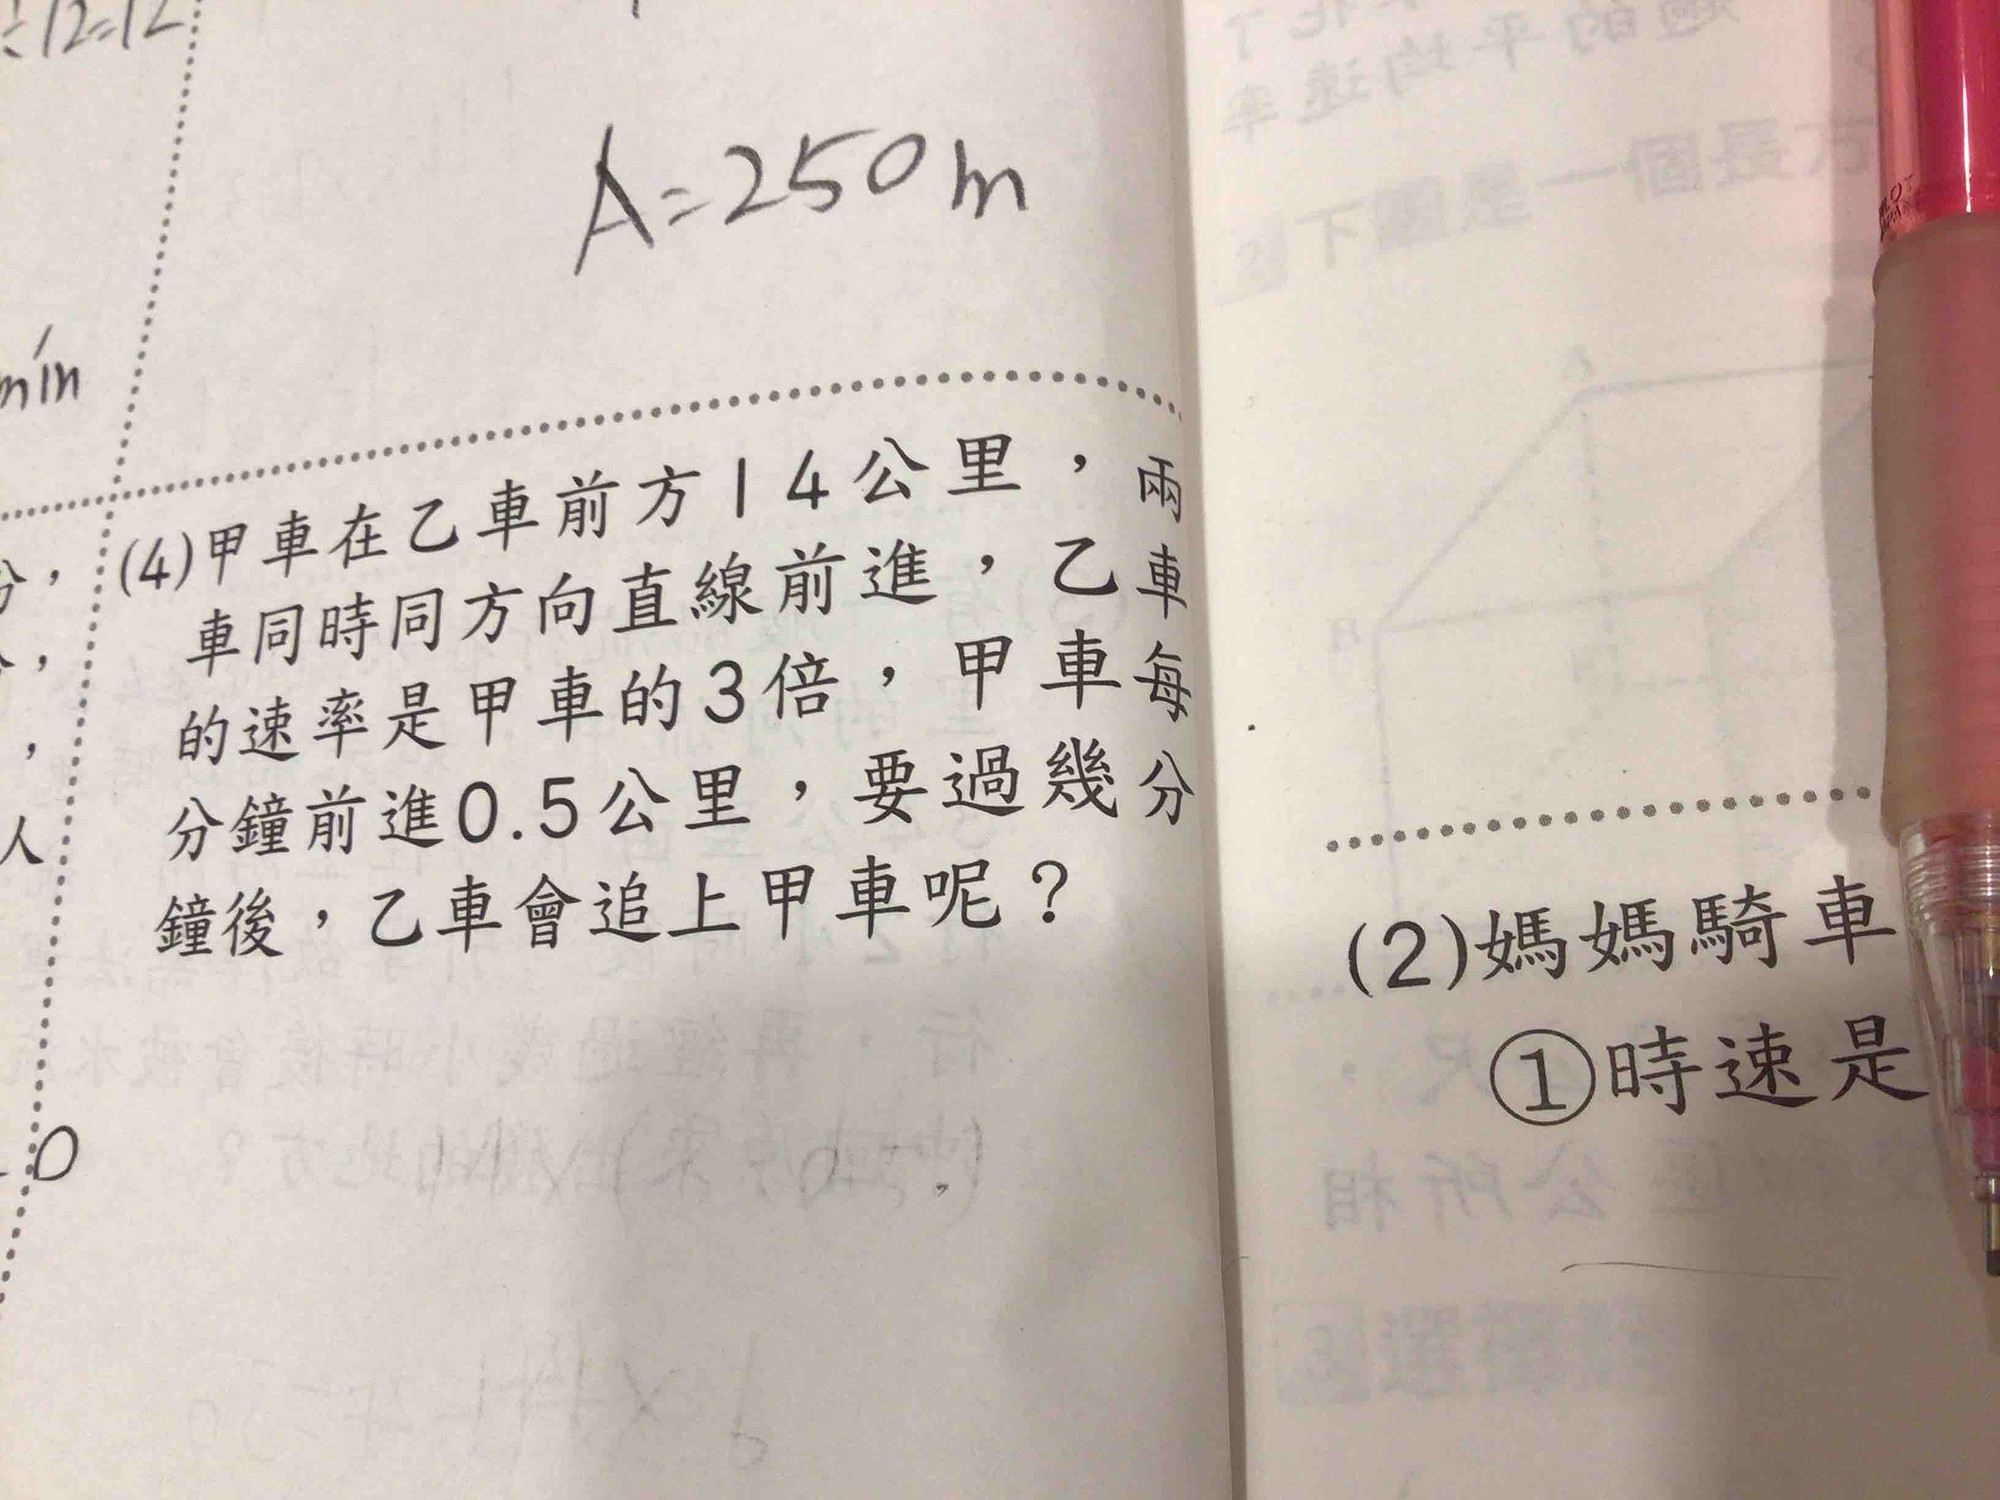 ÷12=12
A=250m
min
分，
(4)甲車在乙車前方14公里，兩
車同時同方向直線前進，乙車
的速率是甲車的3倍，甲車每
分鐘前進0.5公里，要過幾分
鐘後，乙車會追上甲車呢？
人
0
(2)媽媽騎車
①時速是